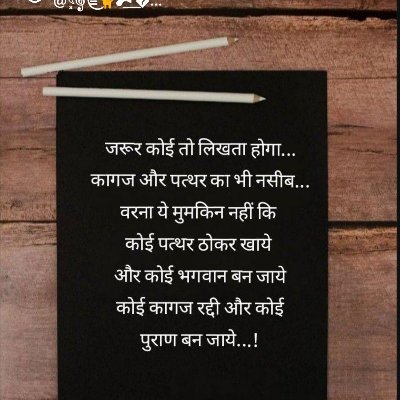 जरूर कोई तो लिखता होगा...
कागज और पत्थर का भी नसीब...
वरना ये मुमकिन नहीं कि
कोई पत्थर ठोकर खाये
और कोई भगवान बन जाये
कोई कागज रद्दी और कोई
पुराण बन जाये...!